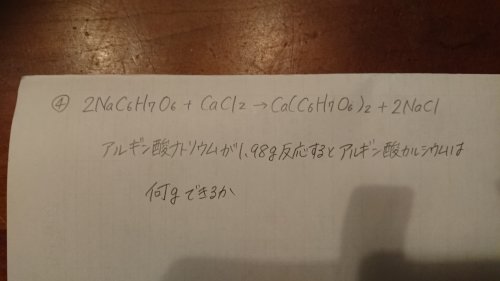 ④ 2NaC6H7O6 + CaCl2 → Ca(C6H7O6)2 + 2NaCl
アルギン酸ナトリウムが1.98g反応するとアルギン酸カルシウムは
何gできるか